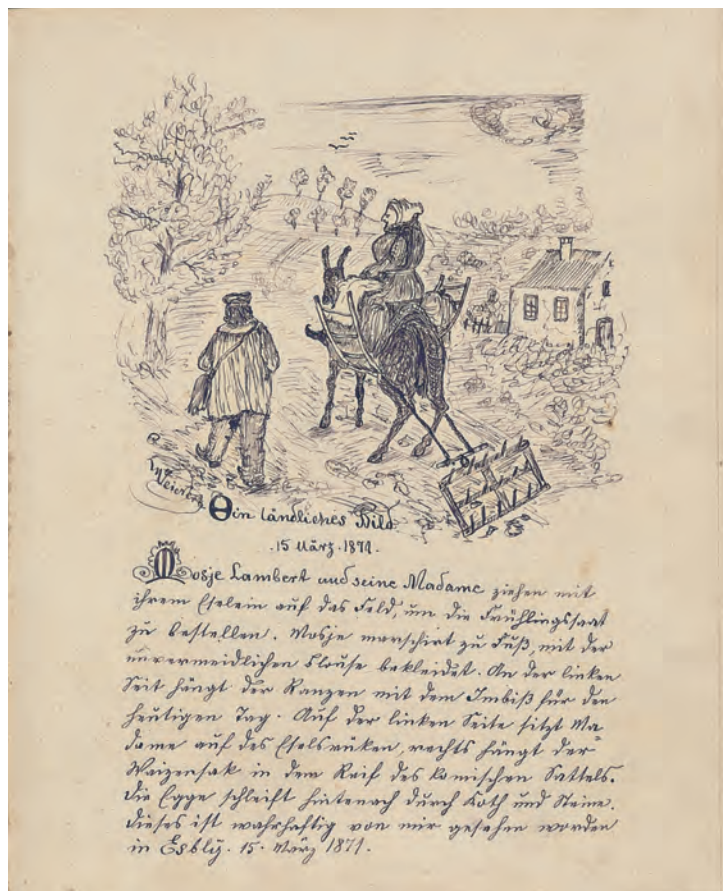 Ein ländliches Bild
. 15 März. 1871.
Mosje Lambert und seine Madame ziehen mit
ihrem Eselein auf das Feld, um die Frühlingssaat
zu bestellen. Mosje marschirt zu Fuß, mit der
unvermeidlichen Blouse bekleidet. An der linken
Seit hängt der Ranzen mit dem Imbiß für den
heutigen Tag. Auf der linken Seite sitzt Ma
dame auf des Eselsrüken, rechts hängt der
Waizensak in dem Reif des komischen Sattels.
Die Egge schleift hintenach durch Koth und Steine.
Dieses ist wahrhaftig von mir gesehen worden
in Esbly. 15. März 1871.